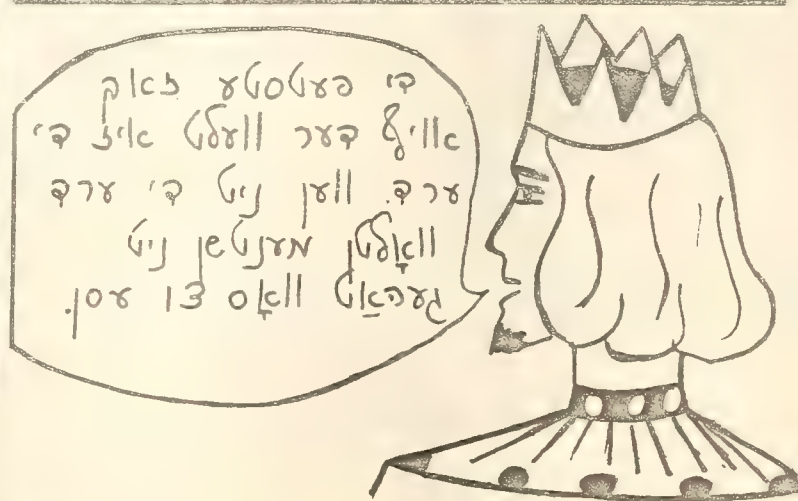 די פעטסטע זאַק
אוויף דער וועלט איז די
ערד. ווען ניט די ערד
וואָלטן מענטשן ניט
געהאַט וואָס צו עסן.